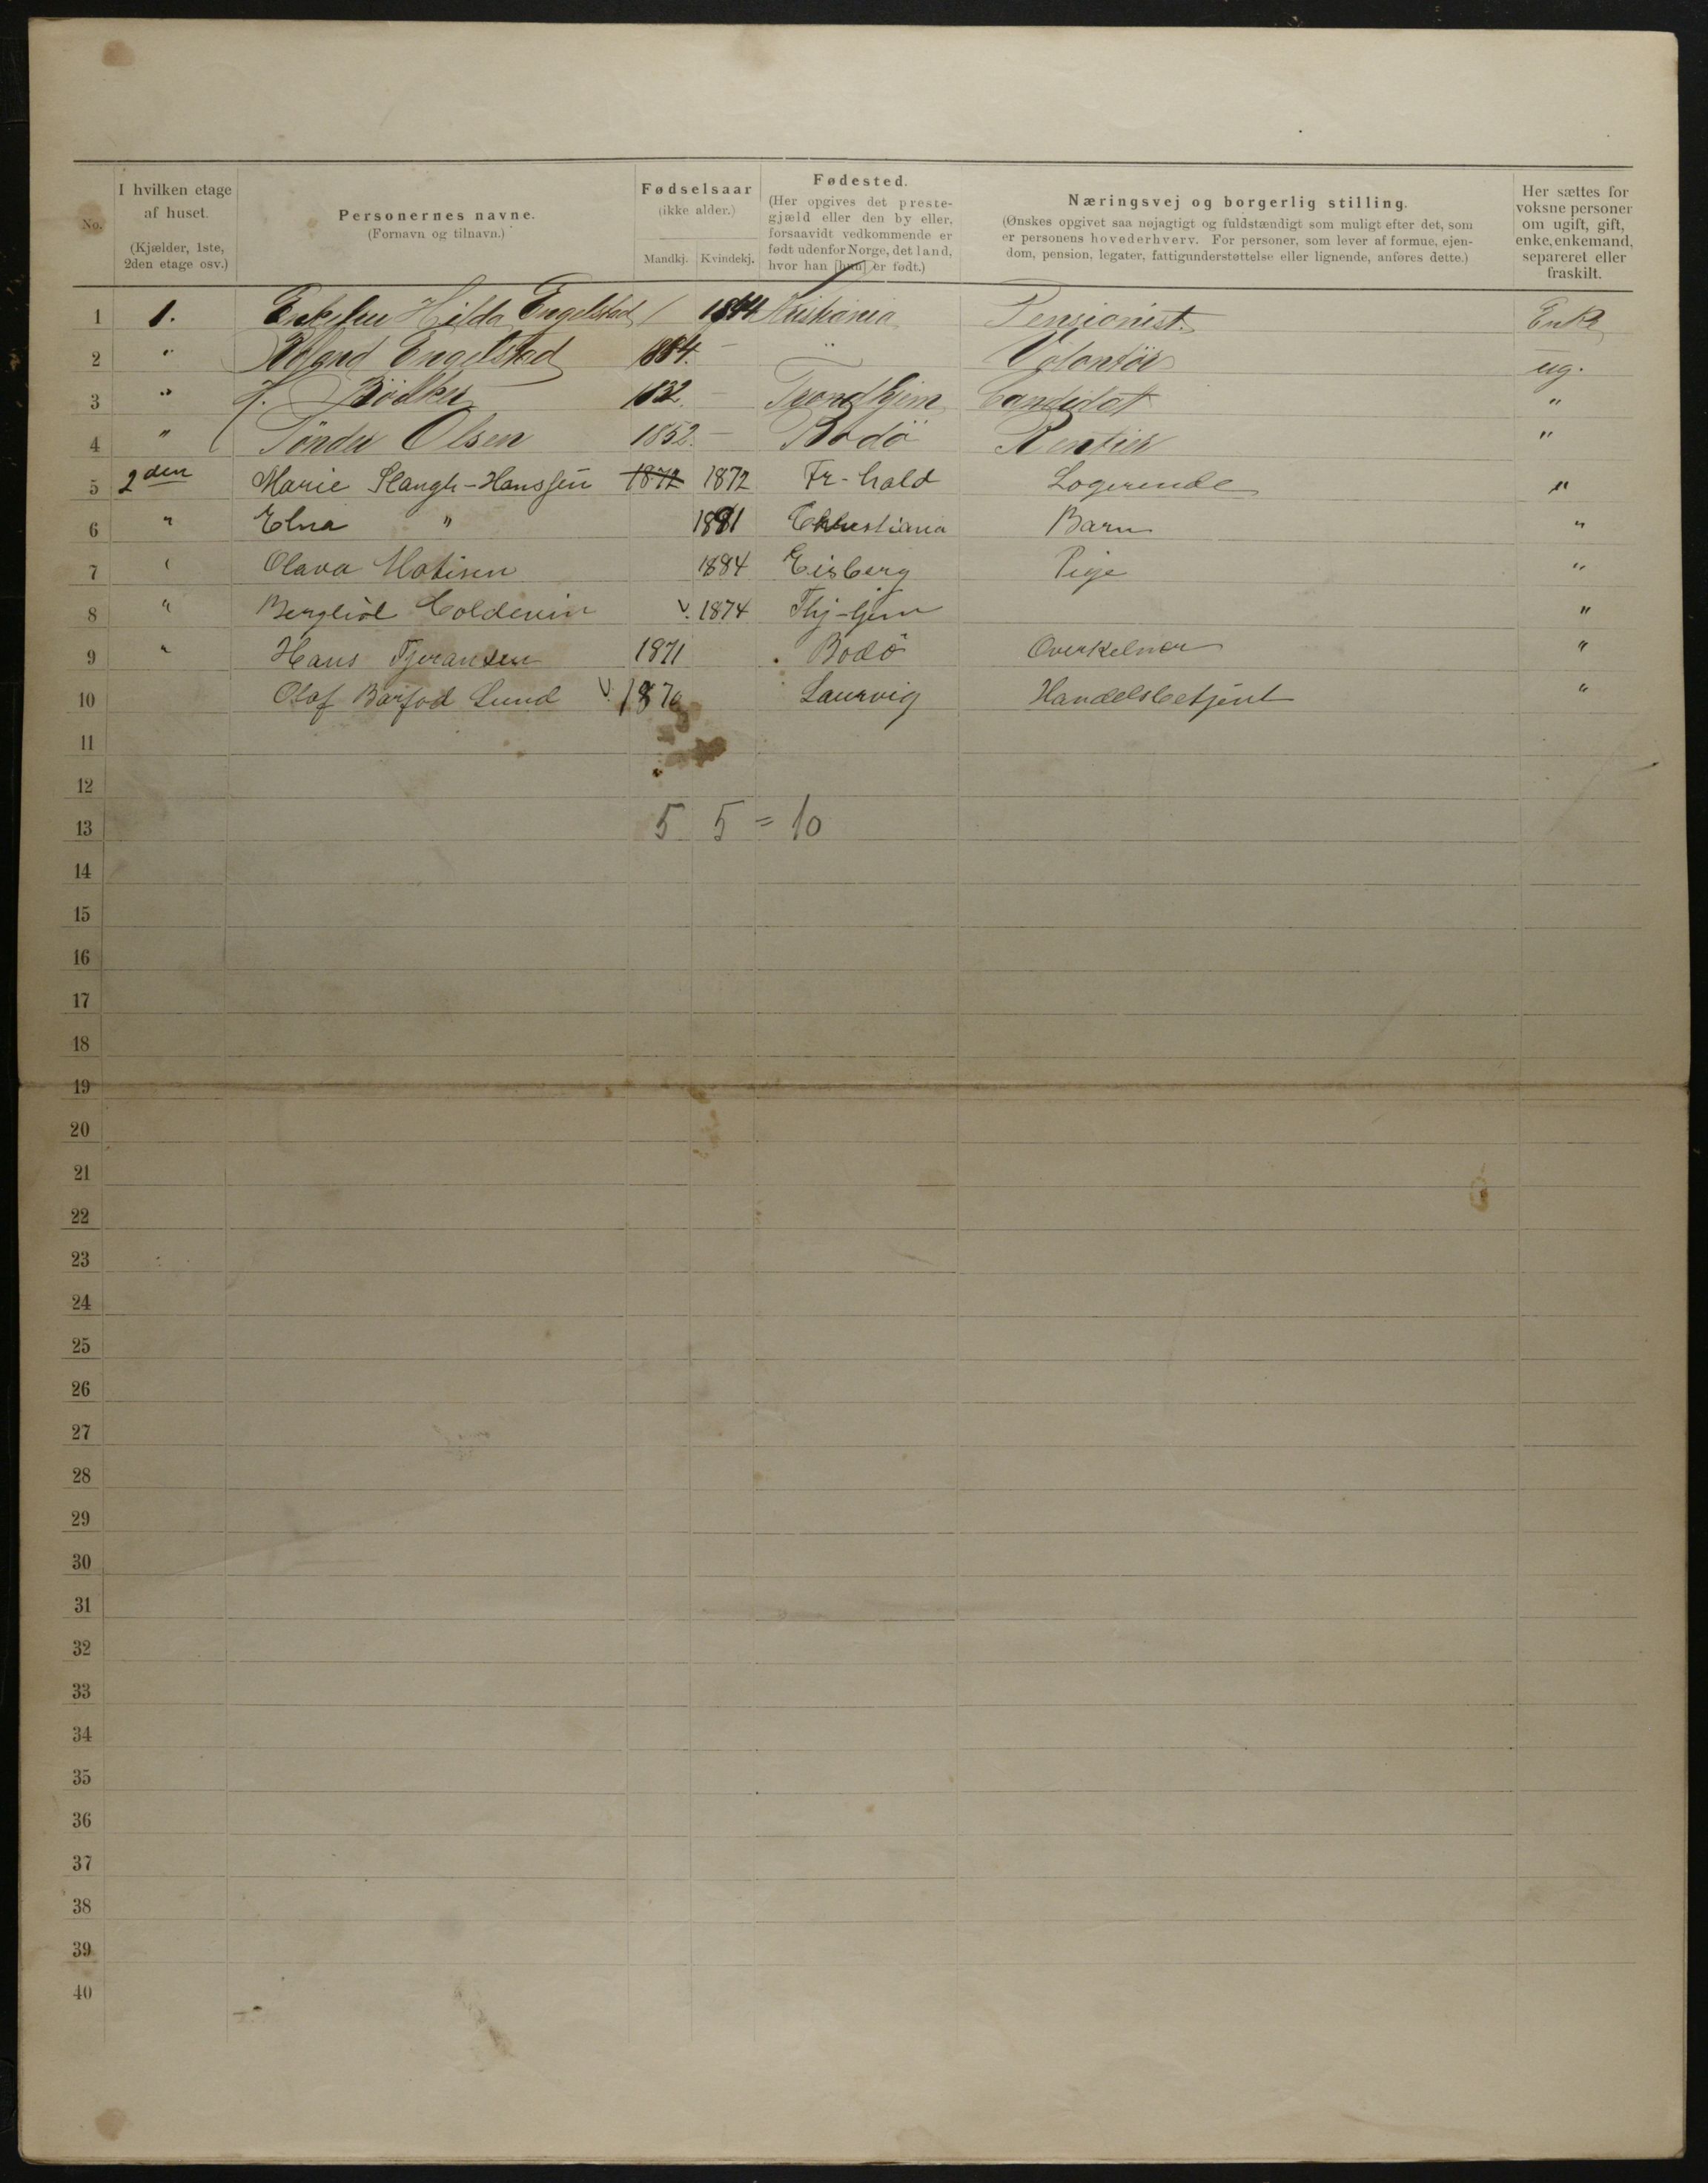 No.
I hvilken etage af huset. (Kjælder, 1ste, 2den etage osv.)
Personernes navne. (Fornavn og tilnavn.)
Fødselsaar (ikke alder.) Mandkj. Kvindekj.
Fødested. (Her opgives det prestegjæld eller den by eller, forsaavidt vedkommende er født udenfor Norge, det land, hvor han [hun] er født.)
Næringsvej og borgerlig stilling. (Ønskes opgivet saa nøjagtigt og fuldstændigt som muligt efter det, som er personens hovederhverv. For personer, som lever af formue, ejendom, pension, legater, fattigunderstøttelse eller lignende, anføres dette.)
Her sættes for voksne personer om ugift, gift, enke, enkemand, separeret eller fraskilt.
1 1. Enkefru Hilda Engelstad / 1844 Kristiania Pensionist. Enke
2 " Engelstad 1884. — " Volontör ug.
3 " J. Bödker 1832. — Trondhjem Candidat "
4 " Tönder Olsen 1852. — Bodö Rentier "
5 2den Marie Slangh-Hanssen 1872 1872 Fr-hald Logerende "
6 " Elna " 1891 Christiania Barn "
7 " Olava Matisen 1884 Eisberg Pige "
8 " Bergliot Coldevin v. 1874 Thj-hjem "
9 " Hans Tjeransen 1871 Bodö Overkelner "
10 Olaf Barfod Lund v. 1870 Laurvig Handelsbetjent "
11
12
13 5 5 = 10
14
15
16
17
18
19
20
21
22
23
24
25
26
27
28
29
30
31
32
33
34
35
36
37
38
39
40